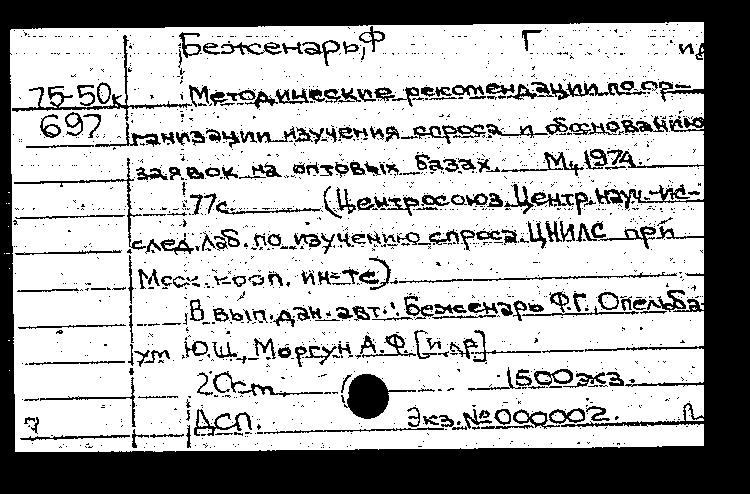 Беженарь, Ф Г ид
75-50к Методические рекомендации по ор-
697 ганизации изучения спроса и обоснованию
заявок на оптовых базах. М., 1974.
77с. (Центросоюз. Центр. науч.-ис-
след. лаб. по изучению спроса. ЦНИЛС при
Моск. кооп. ин-те).
В вып. дан. авт.: Беженарь Ф.Г., Опельба-
ум Ю.Ш., Моргун А.Ф. [и др].
20см. 1500 экз.
ДСП. Экз. №000002.